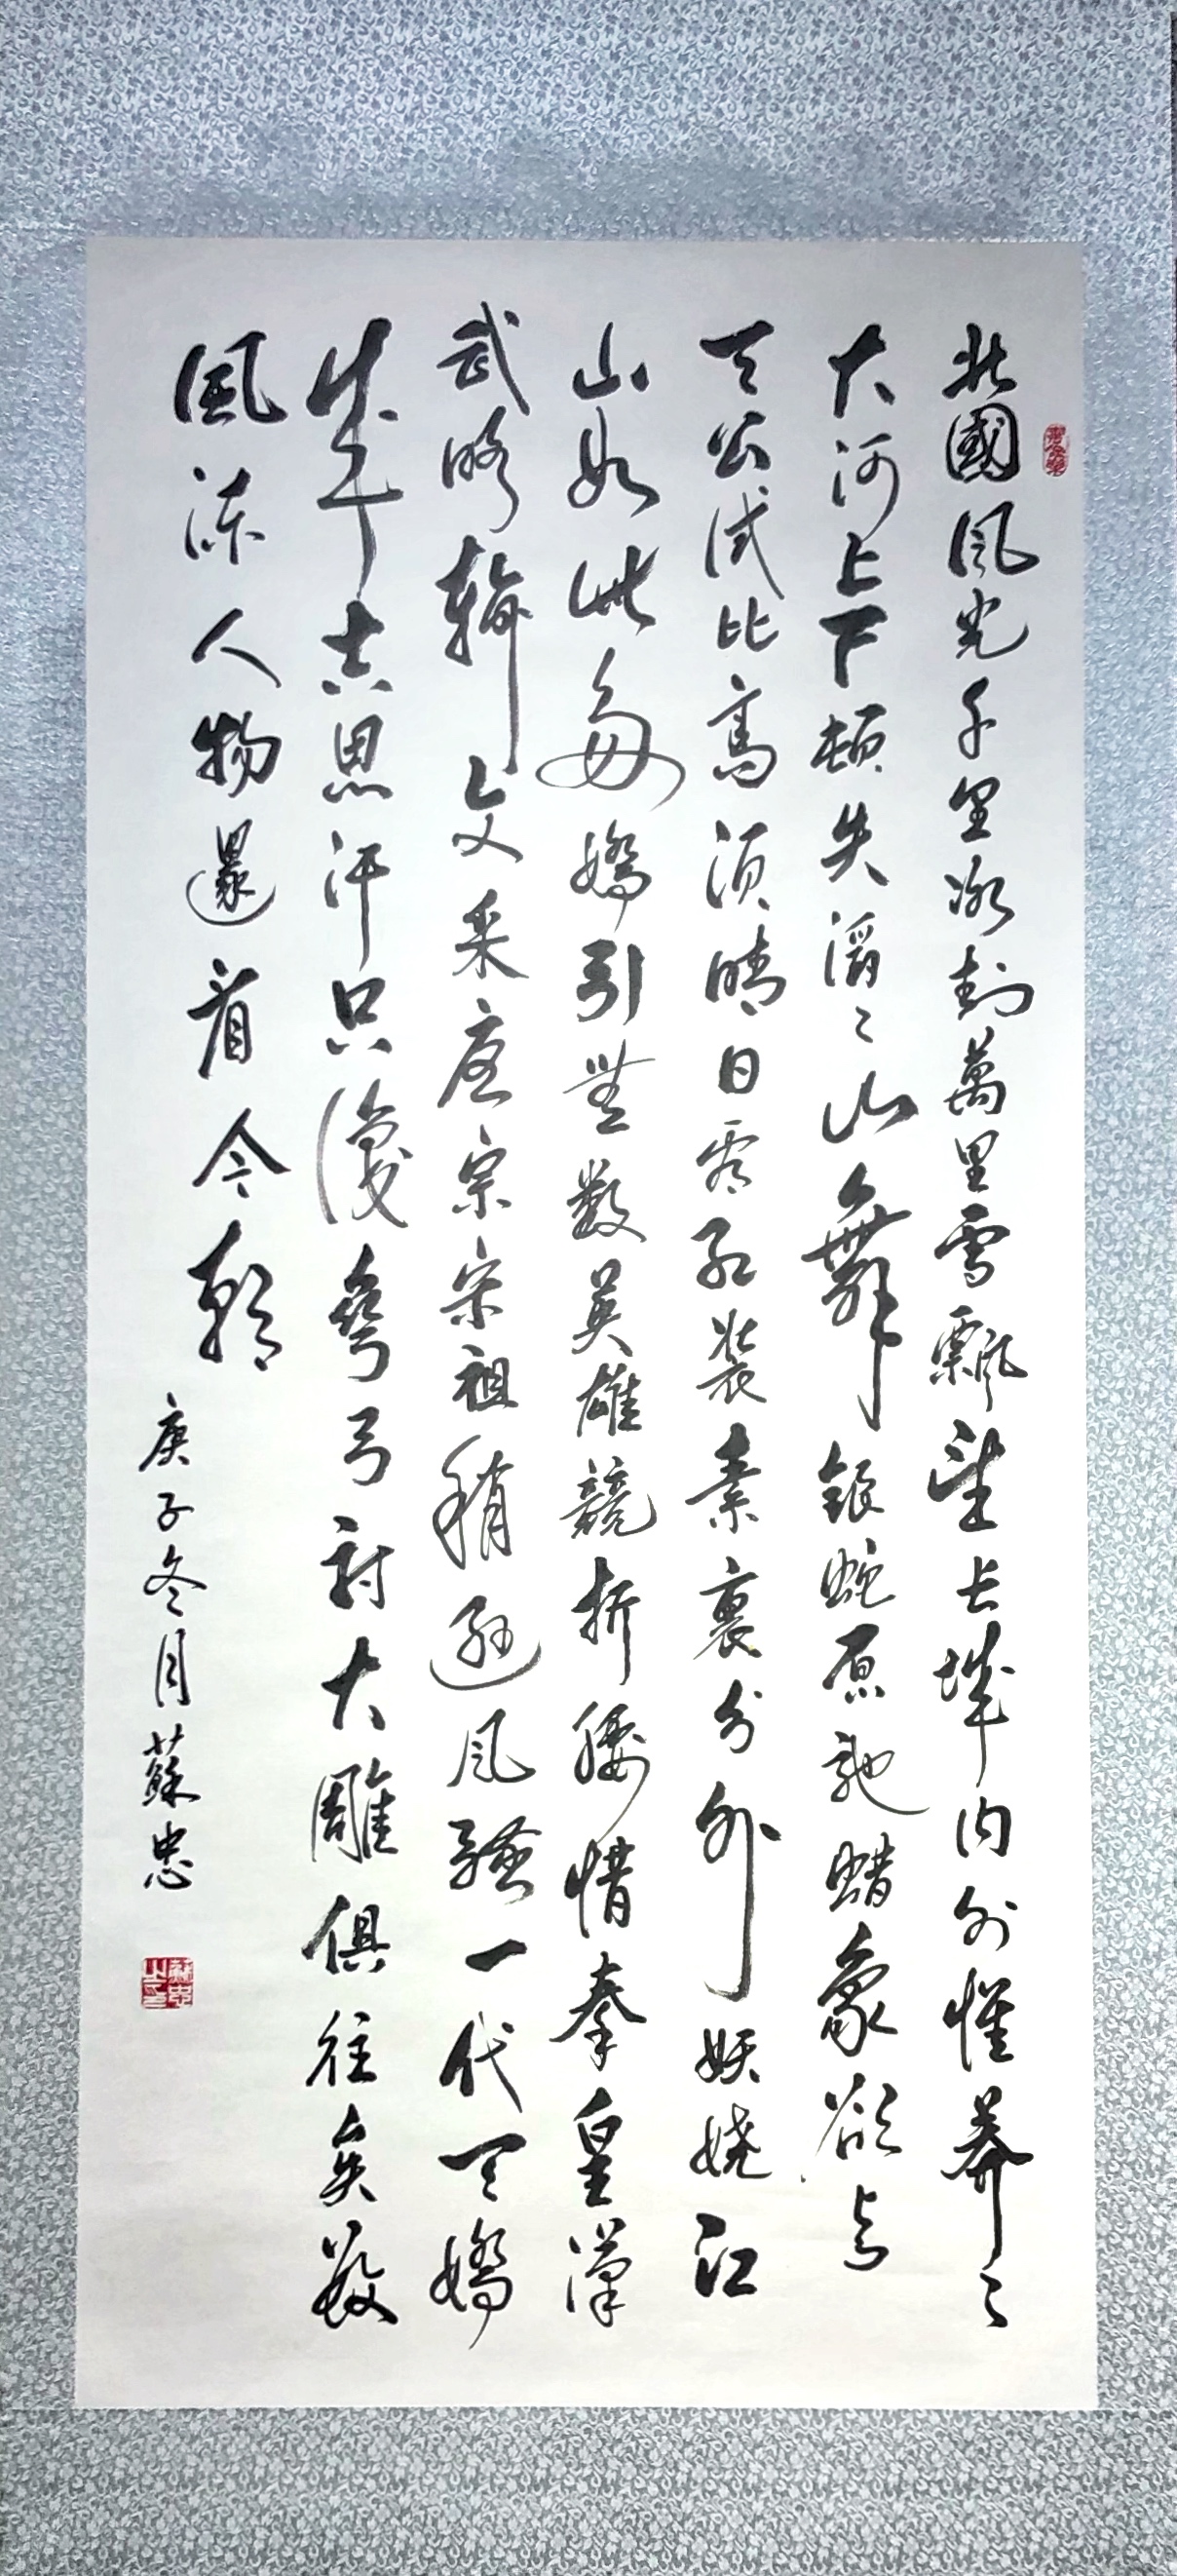 北國風光千里冰封萬里雪飄望长城内外惟莽〻
大河上下顿失滔〻山舞银蛇原驰蜡象欲与
天公试比高须晴日看红装素裹分外妖娆江
山如此多娇引無数英雄競折腰惜秦皇漢
武略输文采唐宗宋祖稍逊风骚一代天骄
成吉思汗只識彎弓射大雕俱往矣数
風流人物還看今朝
庚子冬月蘇忠